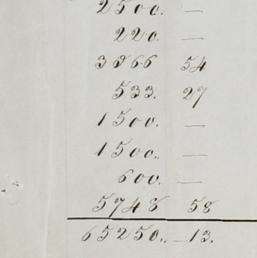 2500. —
220. —
3366 54
533. 27
1500. —
1500.. —
600. —
5748 58
65250.. 13.